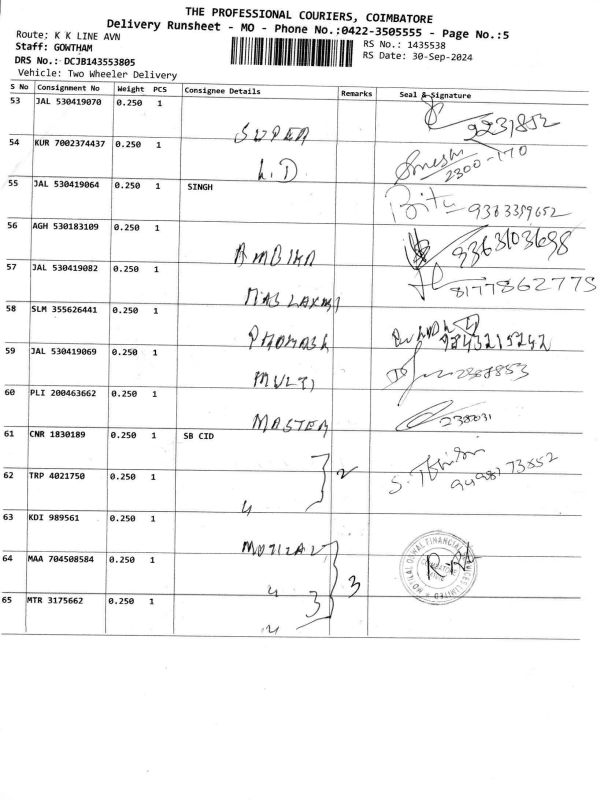 THE PROFESSIONAL COURIERS, COIMBATORE
Delivery Runsheet - MO - Phone No.:0422-3505555 - Page No.:5
Route: K K LINE AVN
RS No.: 1435538
Staff: GOWTHAM
RS Date: 30-Sep-2024
DRS No.: DCJB143553805
Vehicle: Two Wheeler Delivery
S No Consignment No Weight PCS Consignee Details Remarks Seal & Signature
53 JAL 530419070 0.250 1 SUPER
54 KUR 7002374437 0.250 1 L.D 2300-170
55 JAL 530419064 0.250 1 SINGH 9363359652
56 AGH 530183109 0.250 1 AMBIKA 9363103698
57 JAL 530419082 0.250 1 8177862775
58 SLM 355626441 0.250 1 PROKASH 9843215242
59 JAL 530419069 0.250 1 MULTI
60 PLI 200463662 0.250 1 MASTER
61 CNR 1830189 0.250 1 SB CID 2
62 TRP 4021750 0.250 1 〃
63 KDI 989561 0.250 1 MOTILAL
64 MAA 704508584 0.250 1 〃 3 MOTILAL OSWAL FINANCIAL SERVICES LIMITED
65 MTR 3175662 0.250 1 〃 3